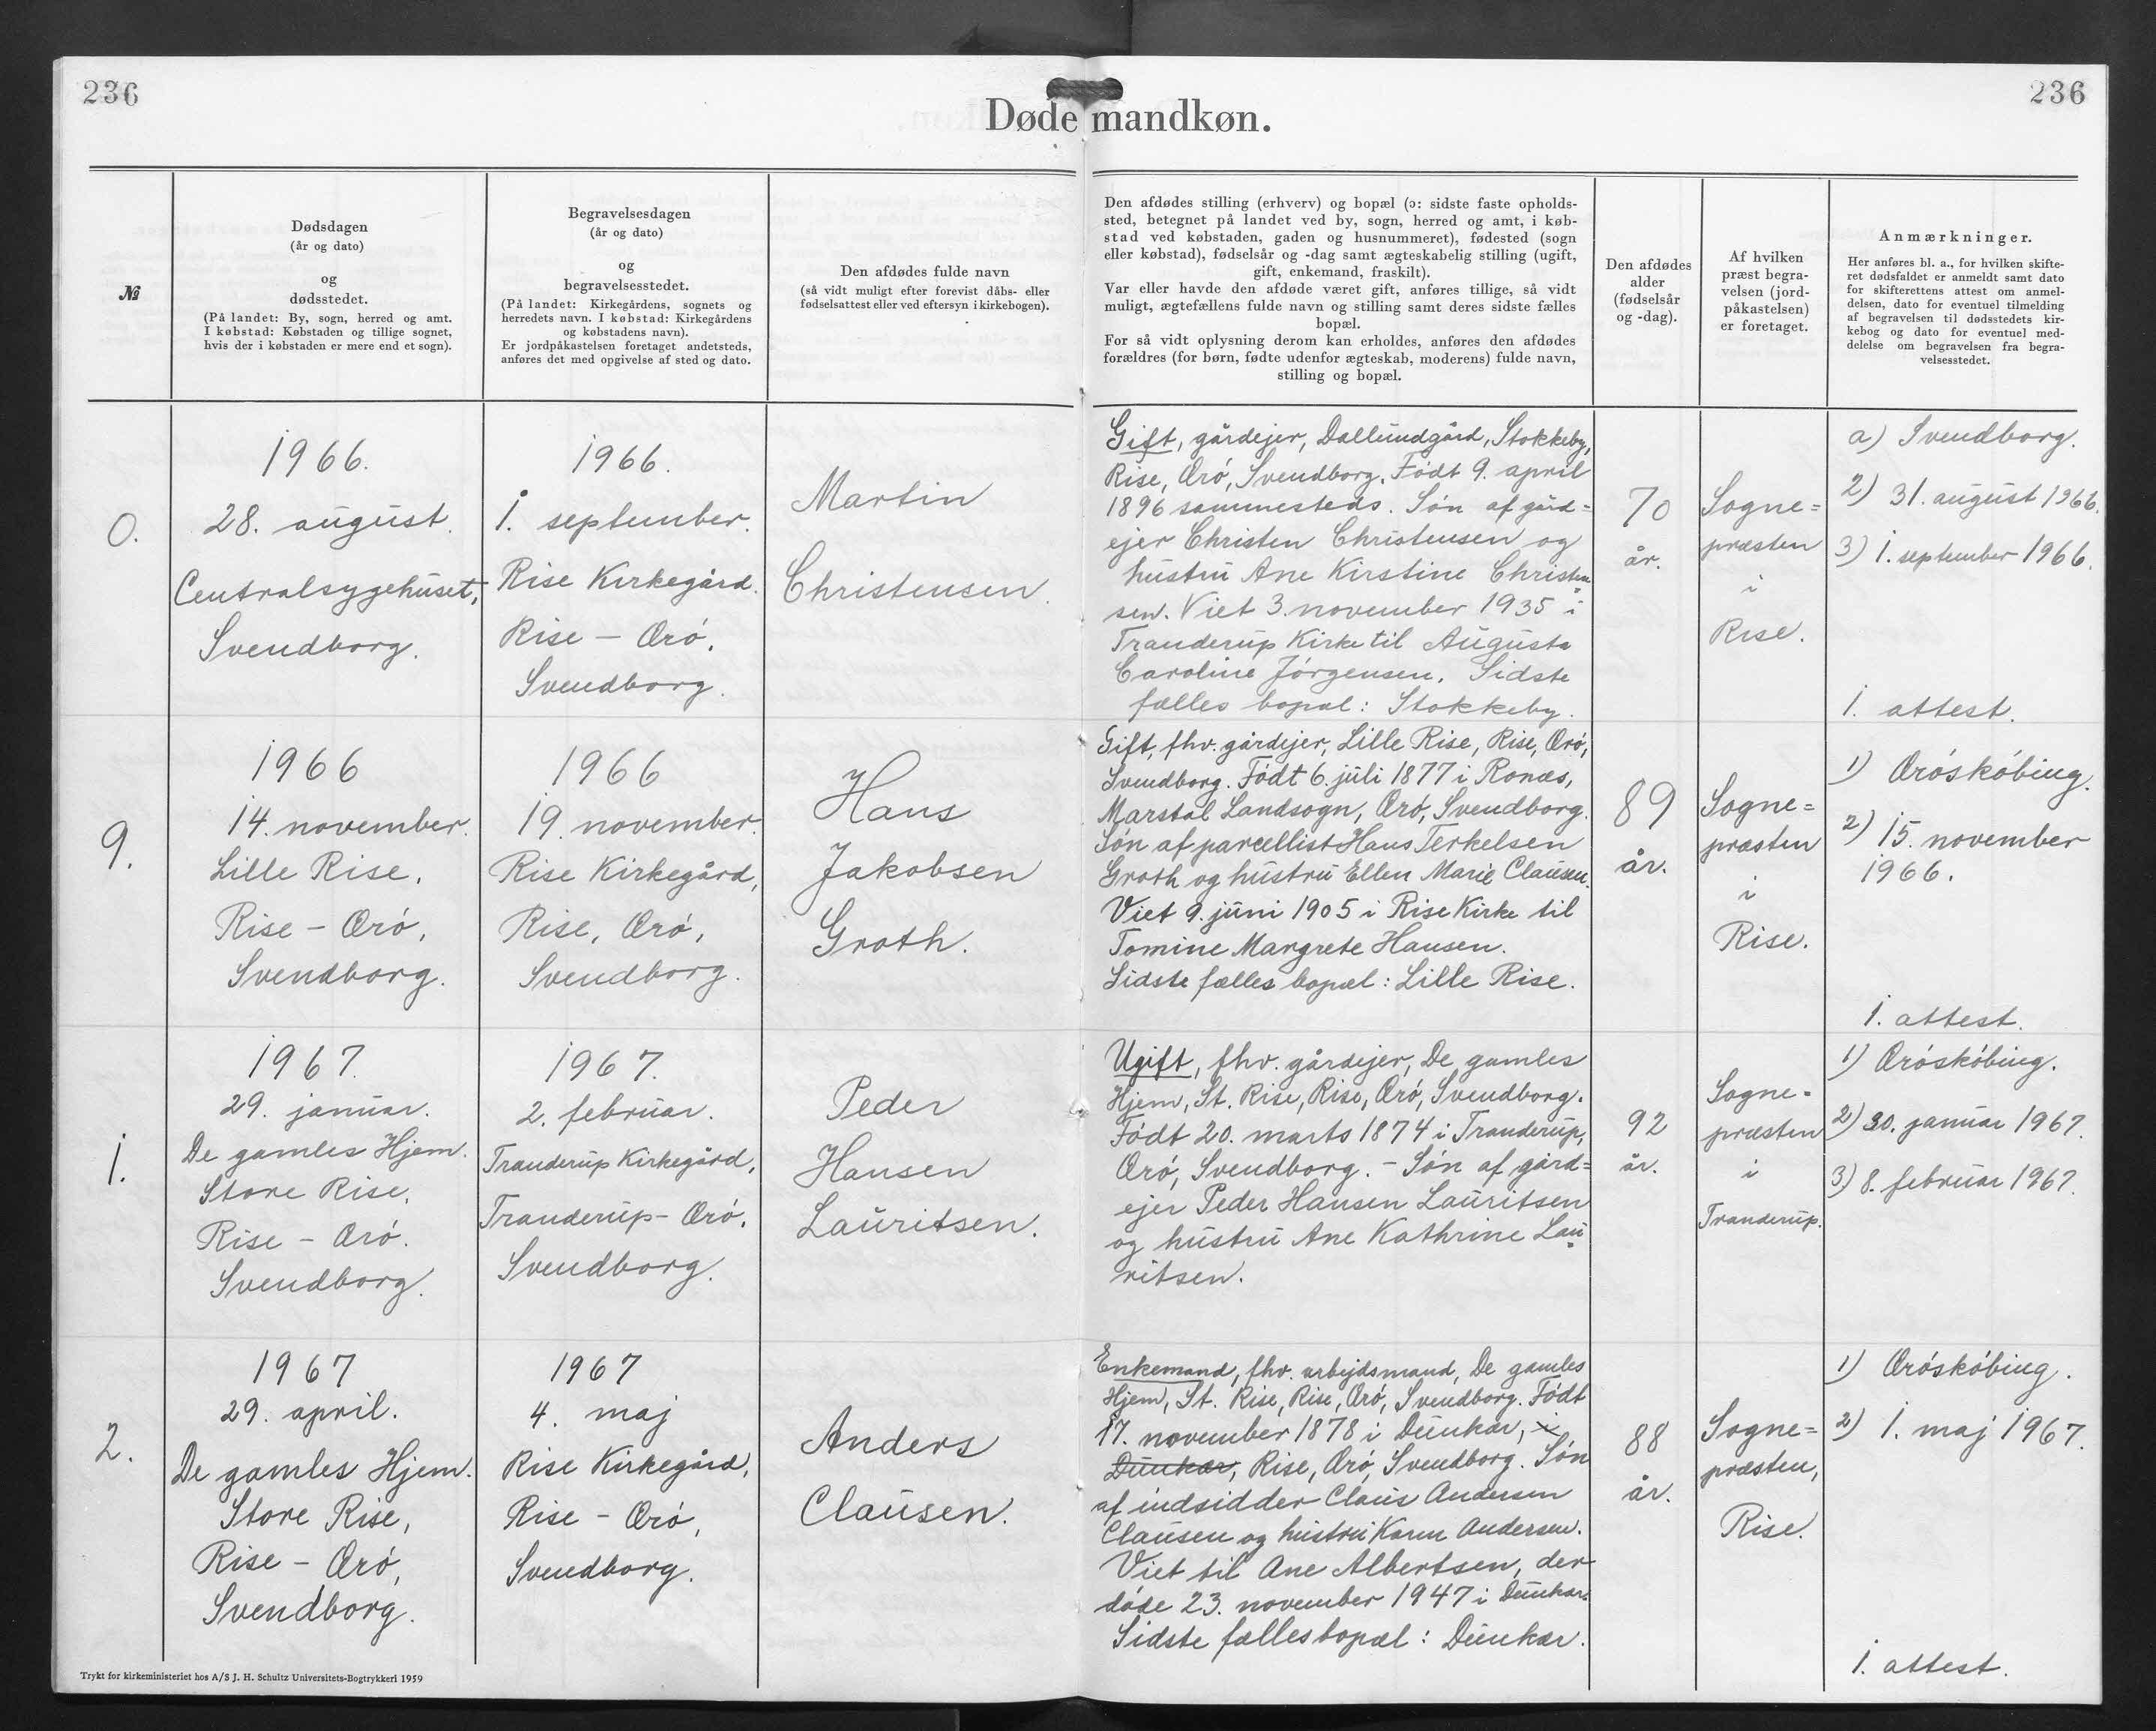 236
236
Døde mandkøn.
№
Dødsdagen
(år og dato)
og
dødsstedet.
(På landet: By, sogn, herred og amt.
I købstad: Købstaden og tillige sognet,
hvis der i købstaden er mere end et sogn).
Begravelsesdagen
(år og dato)
og
begravelsesstedet.
(På landet: Kirkegårdens, sognets og
herredets navn. I købstad: Kirkegårdens
og købstadens navn).
Er jordpåkastelsen foretaget andetsteds,
anføres det med opgivelse af sted og dato.
Den afdødes fulde navn
(så vidt muligt efter forevist dåbs- eller
fødselsattest eller ved eftersyn i kirkebogen).
Den afdødes stilling (erhverv) og bopæl (ɔ: sidste faste opholds-
sted, betegnet på landet ved by, sogn, herred og amt, i køb-
stad ved købstaden, gaden og husnummeret), fødested (sogn
eller købstad), fødselsår og -dag samt ægteskabelig stilling (ugift,
gift, enkemand, fraskilt).
Var eller havde den afdøde været gift, anføres tillige, så vidt
muligt, ægtefællens fulde navn og stilling samt deres sidste fælles
bopæl.
For så vidt oplysning derom kan erholdes, anføres den afdødes
forældres (for børn, fødte udenfor ægteskab, moderens) fulde navn,
stilling og bopæl.
Den afdødes
alder
(fødselsår
og -dag).
Af hvilken
præst begra-
velsen (jord-
påkastelsen)
er foretaget.
Anmærkninger.
Her anføres bl. a., for hvilken skifte-
ret dødsfaldet er anmeldt samt dato
for skifterettens attest om anmel-
delsen, dato for eventuel tilmelding
af begravelsen til dødsstedets kir-
kebog og dato for eventuel med-
delelse om begravelsen fra begra-
velsesstedet.
0.
1966.
28. august.
Centralsygehuset,
Svendborg.
1966.
1. september.
Rise Kirkegård.
Rise - Ærø,
Svendborg.
Martin
Christensen.
Gift, gårdejer, Dallundgård, Stokkeby,
Rise, Ærø, Svendborg. Født 9. april
1896 sammesteds. Søn af gård=
ejer Christen Christensen og
hustru Ane Kirstine Christen
sen. Viet 3. november 1935 i
Tranderup Kirke til Augusta
Caroline Jørgensen. Sidste
fælles bopæl: Stokkeby.
70
år.
Sogne=
præsten
i
Rise.
a) Svendborg.
2) 31. august 1966.
3) 1. september 1966.
1. attest.
9.
1966
14. november.
Lille Rise,
Rise - Ærø,
Svendborg.
1966
19. november.
Rise Kirkegård,
Rise, Ærø,
Svendborg.
Hans
Jakobsen
Groth.
Gift, fhv. gårdejer, Lille Rise, Rise, Ærø,
Svendborg. Født 6. juli 1877 i Ronæs,
Marstal Landsogn, Ærø, Svendborg.
Søn af parcellist Hans Terkelsen
Groth og hustru Ellen Marie Clausen.
Viet 9. juni 1905 i Rise Kirke til
Tomine Margrete Hansen.
Sidste fælles bopæl: Lille Rise.
89
år.
Sogne=
præsten
i
Rise.
1) Ærøskøbing.
2) 15. november
1966.
1. attest.
1.
1967.
29. januar.
De gamles Hjem.
Store Rise,
Rise - Ærø.
Svendborg.
1967.
2. februar.
Tranderup Kirkegård,
Tranderup - Ærø.
Svendborg.
Peder
Hansen
Lauritsen.
Ugift, fhv. gårdejer, De gamles
Hjem, St. Rise, Rise, Ærø, Svendborg.
Født 20. marts 1874 i Tranderup,
Ærø, Svendborg. - Søn af gård=
ejer Peder Hansen Lauritsen
og hustru Ane Kathrine Lau
ritsen.
92
år.
Sogne=
præsten
i
Tranderup.
1) Ærøskøbing.
2) 30. januar 1967.
3) 8. februar 1967.
2.
1967
29. april.
De gamles Hjem.
Store Rise,
Rise - Ærø,
Svendborg.
1967
4. maj
Rise Kirkegård,
Rise - Ærø,
Svendborg.
Anders
Clausen.
Enkemand, fhv. arbejdsmand, De gamles
Hjem, St. Rise, Rise, Ærø, Svendborg. Født
17. november 1878 i Dunkær, i
Dunkær, Rise, Ærø, Svendborg. Søn
af indsidder Claus Andersen
Clausen og hustru Karen Andersen.
Viet til Ane Albertsen, der
døde 23. november 1947 i Dunkær.
Sidste fælles bopæl: Dunkær.
88
år.
Sogne=
præsten,
Rise.
1) Ærøskøbing.
2) 1. maj 1967.
1. attest.
Trykt for kirkeministeriet hos A/S J. H. Schultz Universitets-Bogtrykkeri 1959